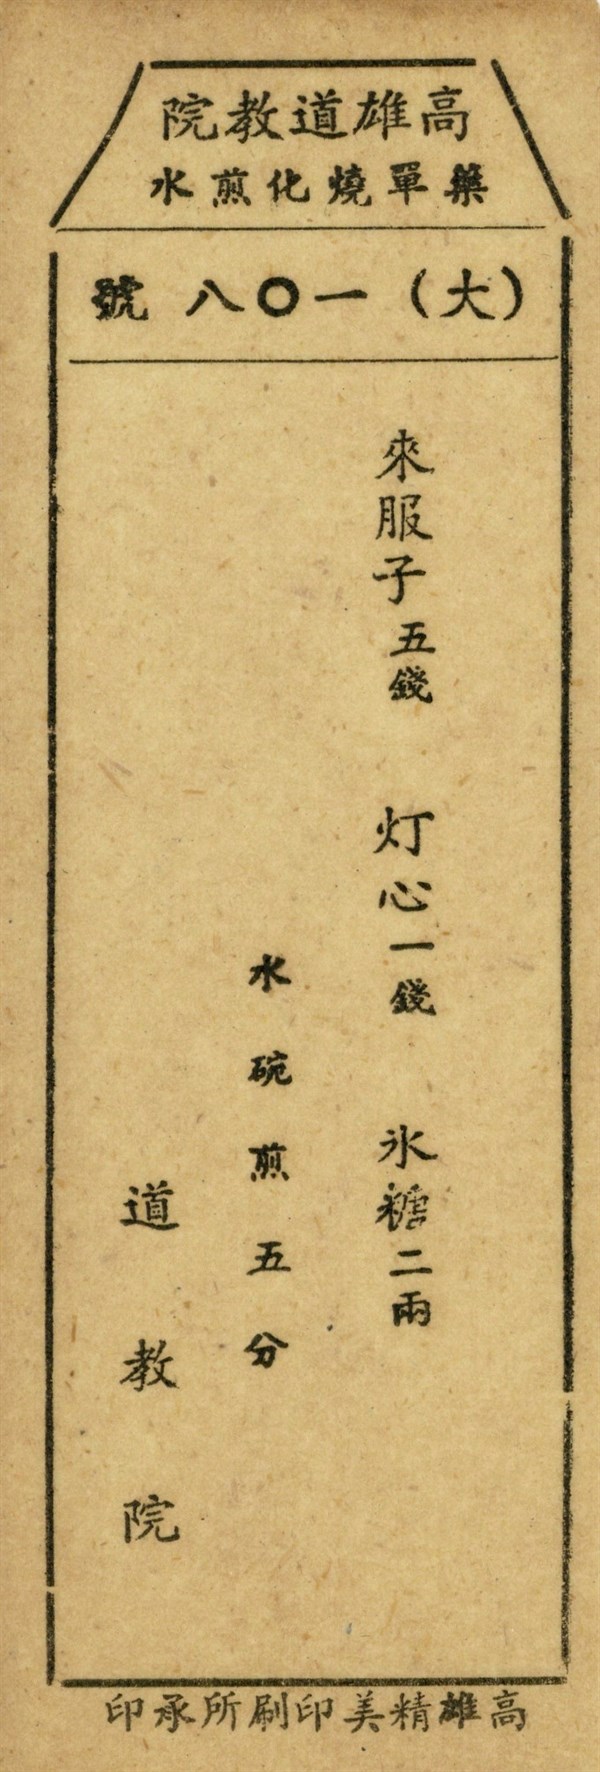 高雄道教院
藥單燒化煎水
（大）一〇八號
來服子五錢 灯心一錢 氷糖二兩
水碗煎五分
道教院
高雄精美印刷所承印